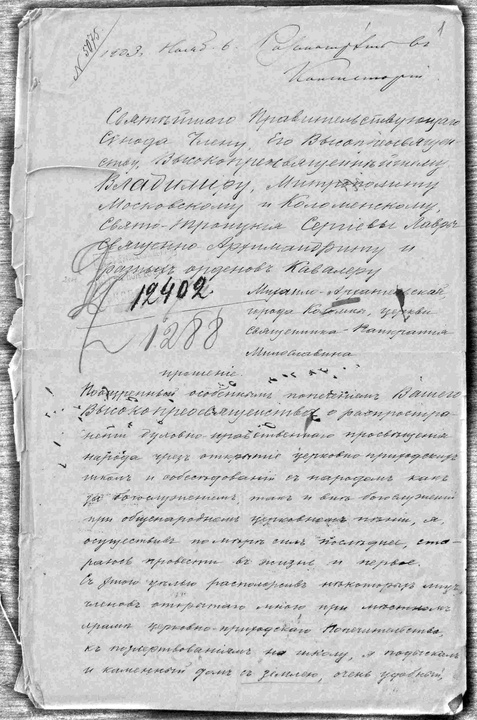 1
N 5075
190 . Нояб 6. Разсмотрѣть въ
Консисторіи.
Святѣйшаго Правительствующаго
Сѵнода Члену, Его Высокопреосвящен
ству, Высокопреосвященнѣйшему
Владимиру, Митрополиту
Московскому и Коломенскому,
Свято-Троицкія Сергіевы Лавры
Священно-Архимандриту и
разныхъ орденовъ Кавалеру
12402
1288
Михаило-Архангельской
города Коломны, церкви
священника
Милославина
прошеніе.
Поощренный особеннымъ попеченіемъ Вашего
Высокопреосвященства о распростра-
неніи духовно-нравственнаго просвѣщенія
народа чрезъ открытіе церковно-приходскихъ
школъ и собесѣдованій съ народомъ какъ
за богослуженіемъ такъ и внѣ богослуженія
при общенародномъ церковномъ пѣніи, я,
осуществивъ по мѣрѣ силъ послѣднее, ста-
раюсь провести въ жизнь и первое.
Съ этою цѣлью расположивъ нѣкоторыхъ лицъ,
членовъ открытаго мною при мѣстномъ
храмѣ церковно-приходскаго Попечительства,
къ пожертвованіямъ на школу, я подыскалъ
и каменный домъ съ землею, очень удобный,